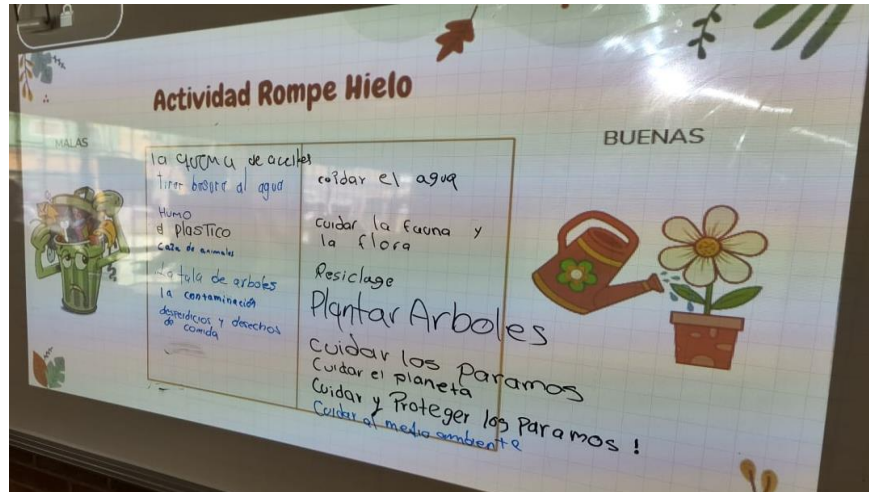 Actividad Rompe Hielo
MALAS
BUENAS
la quema de aceites
tirar basura al agua
Humo
el plasTico
Caza de animales
La tala de arboles
la contaminación
desperdicios y desechos
de comida
coidar el agua
cuidar la fauna y
la flora
Resiclage
Plantar Arboles
cuidar los paramos
Cuidar el planeta
Cuidar y Proteger los paramos !
Cuidar al medio ambiente